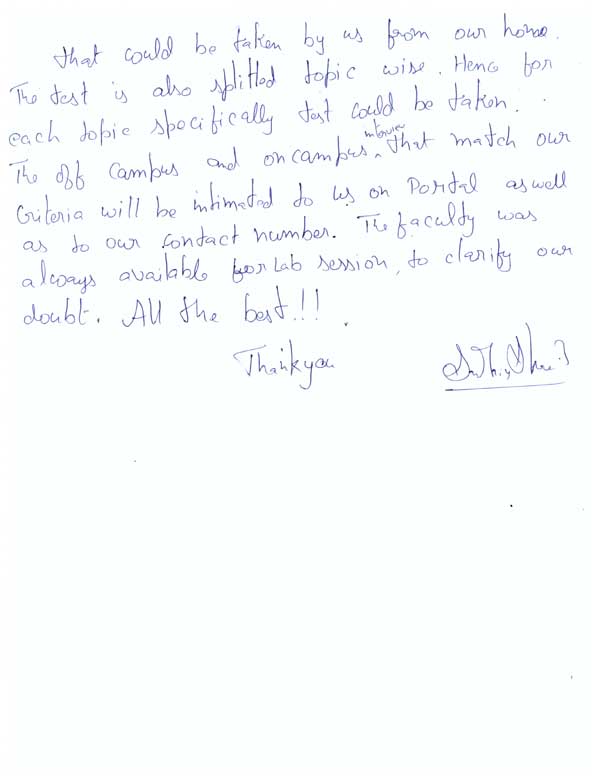 that could be taken by us from our home.
The test is also splitted topic wise. Henc for
each topic specifically test could be taken.
The off campus and oncampus interview that match our
Criteria will be intimated to us on Portal aswell
as to our contact number. The faculty was
always available for Lab session, to clarify our
doubt. All the best!!!
Thankyou